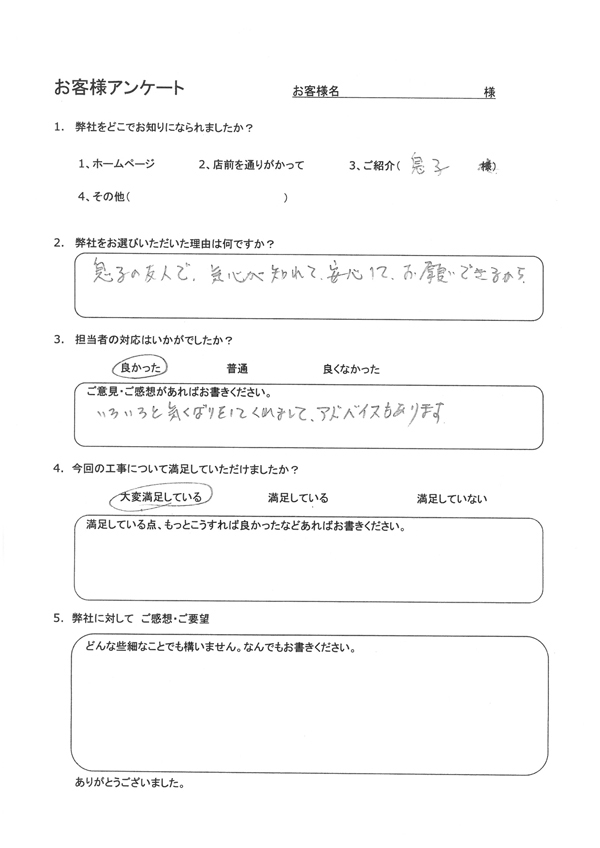 お客様アンケート
お客様名 様
1. 弊社をどこでお知りになられましたか？
1、ホームページ 2、店前を通りがかって 3、ご紹介( 息子 様)
4、その他( )
2. 弊社をお選びいただいた理由は何ですか？
息子の友人で、気心が知れて、安心して、お願いできるから
3. 担当者の対応はいかがでしたか？
良かった 普通 良くなかった
ご意見・ご感想があればお書きください。
いろいろと気くばりをしてくれまして、アドバイスもあります
4. 今回の工事について満足していただけましたか？
大変満足している 満足している 満足していない
満足している点、もっとこうすれば良かったなどあればお書きください。
5. 弊社に対して ご感想・ご要望
どんな些細なことでも構いません。なんでもお書きください。
ありがとうございました。